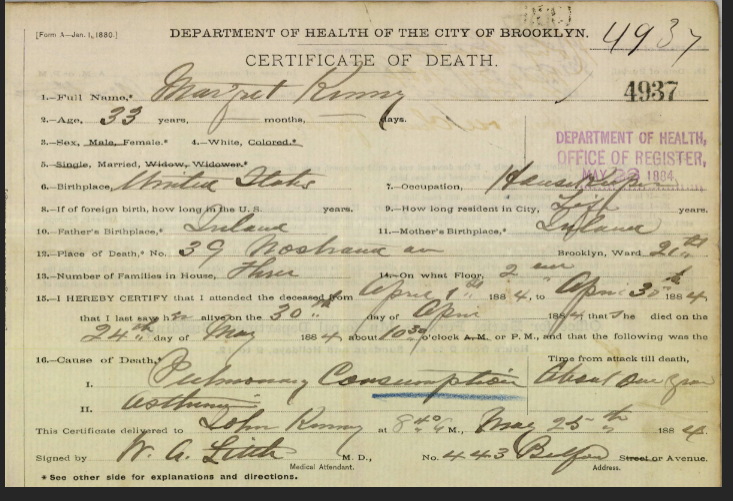 [Form A—Jan. 1, 1880.] DEPARTMENT OF HEALTH OF THE CITY OF BROOKLYN. 4937
CERTIFICATE OF DEATH.
4937
1.—Full Name,* Margret Kinny
2.—Age, 33 years, months, days.
3.—Sex, Male, Female.* 4.—White, Colored.*
DEPARTMENT OF HEALTH,
OFFICE OF REGISTER,
MAY 1884
5.—Single, Married, Widow, Widower.*
6.—Birthplace, United States 7.—Occupation, Housekeeper
8.—If of foreign birth, how long in the U. S. years. 9.—How long resident in City, Life years.
10.—Father's Birthplace,* Ireland 11.—Mother's Birthplace,* Ireland
12.—Place of Death,* No. 39 Nostrand av Brooklyn, Ward 21st
13.—Number of Families in House, Three 14.—On what Floor, 2
15.—I HEREBY CERTIFY that I attended the deceased from April 1st 1884, to April 30th 1884
that I last saw her alive on the 30th day of April 1884 that she died on the
24th day of May 1884 about 10 30 o'clock A.M. or P.M., and that the following was the
16.—Cause of Death,* Time from attack till death,
I. Pulmonary Consumption About one year
II. Asthenia
This Certificate delivered to John Kinny at 8 40 M., May 25th 1884.
Signed by W. A. Little M. D., No. 443 Bedford Street or Avenue.
Medical Attendant. Address.
*See other side for explanations and directions.